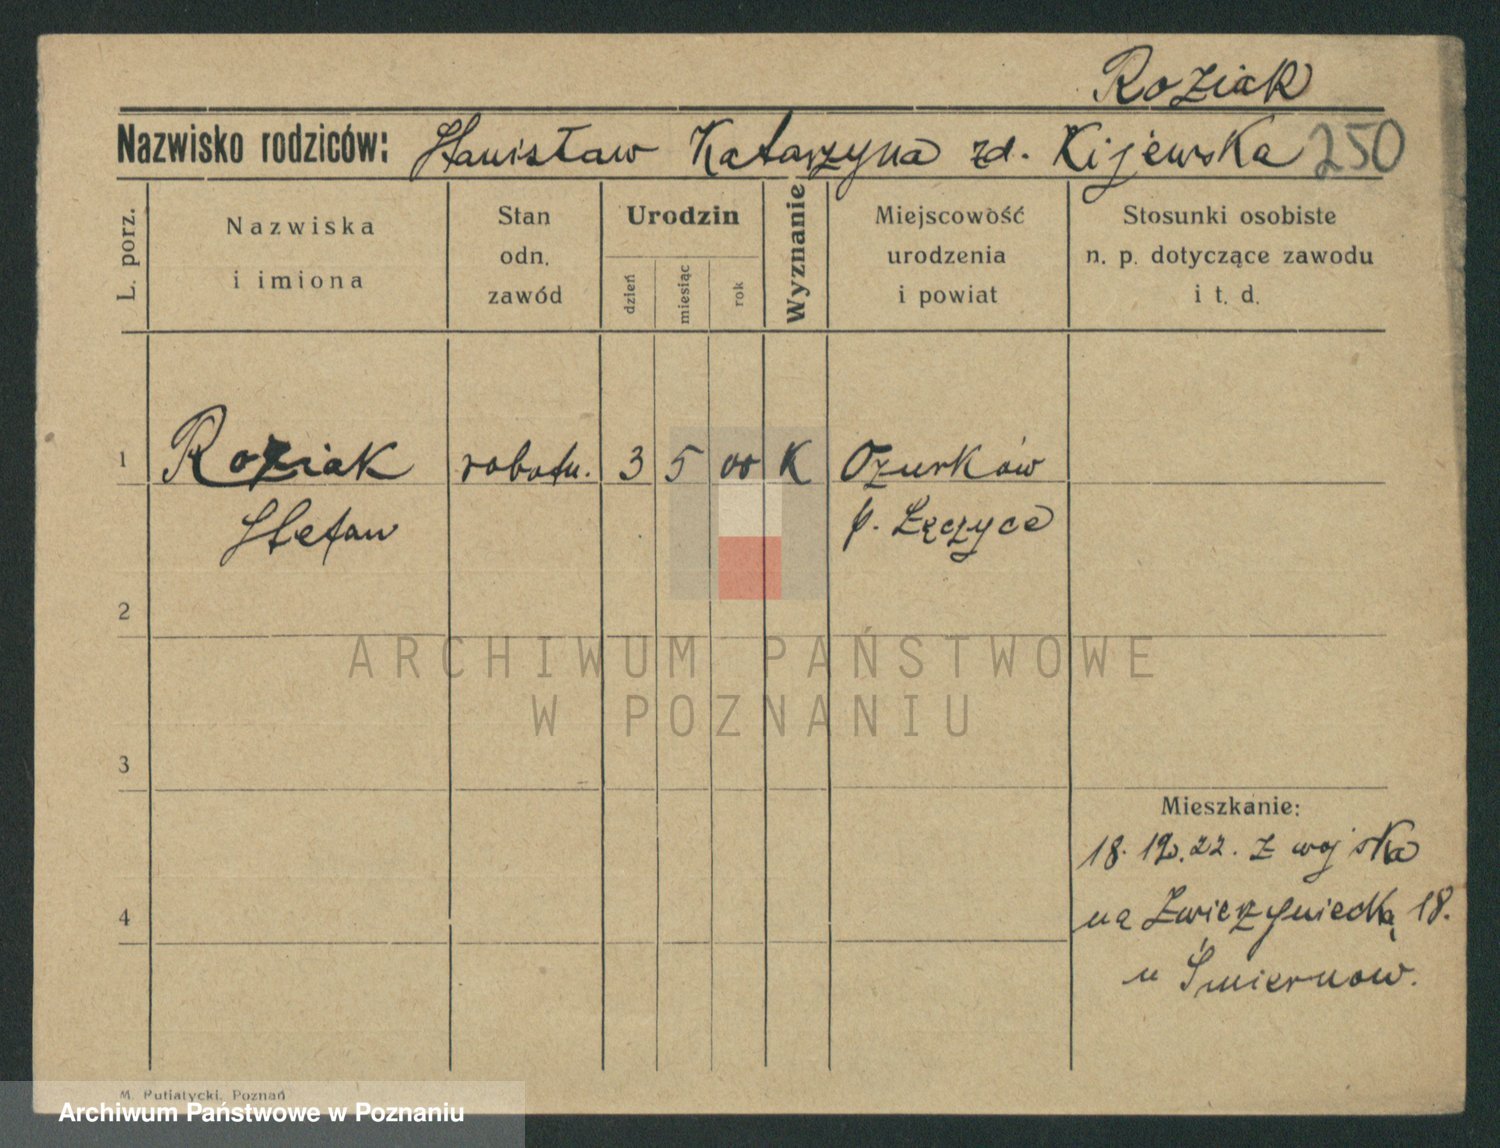 Roziak
Nazwisko rodziców: Stanisław Katarzyna zd. Kijewska 250
L. porz.
Nazwiska
i imiona
Stan
odn.
zawód
Urodzin
dzień
miesiąc
rok
Wyznanie
Miejscowość
urodzenia
i powiat
Stosunki osobiste
n. p. dotyczące zawodu
i t. d.
1 Roziak robotn. 3 5 00 K Ozurków
Stefan p. Łęczyce
2
ARCHIWUM PAŃSTWOWE
W POZNANIU
3
Mieszkanie:
18. 22. z wojska
4 na Zwierzyniecką 18.
u Śmiernow.
M. Putiatycki, Poznań
Archiwum Państwowe w Poznaniu